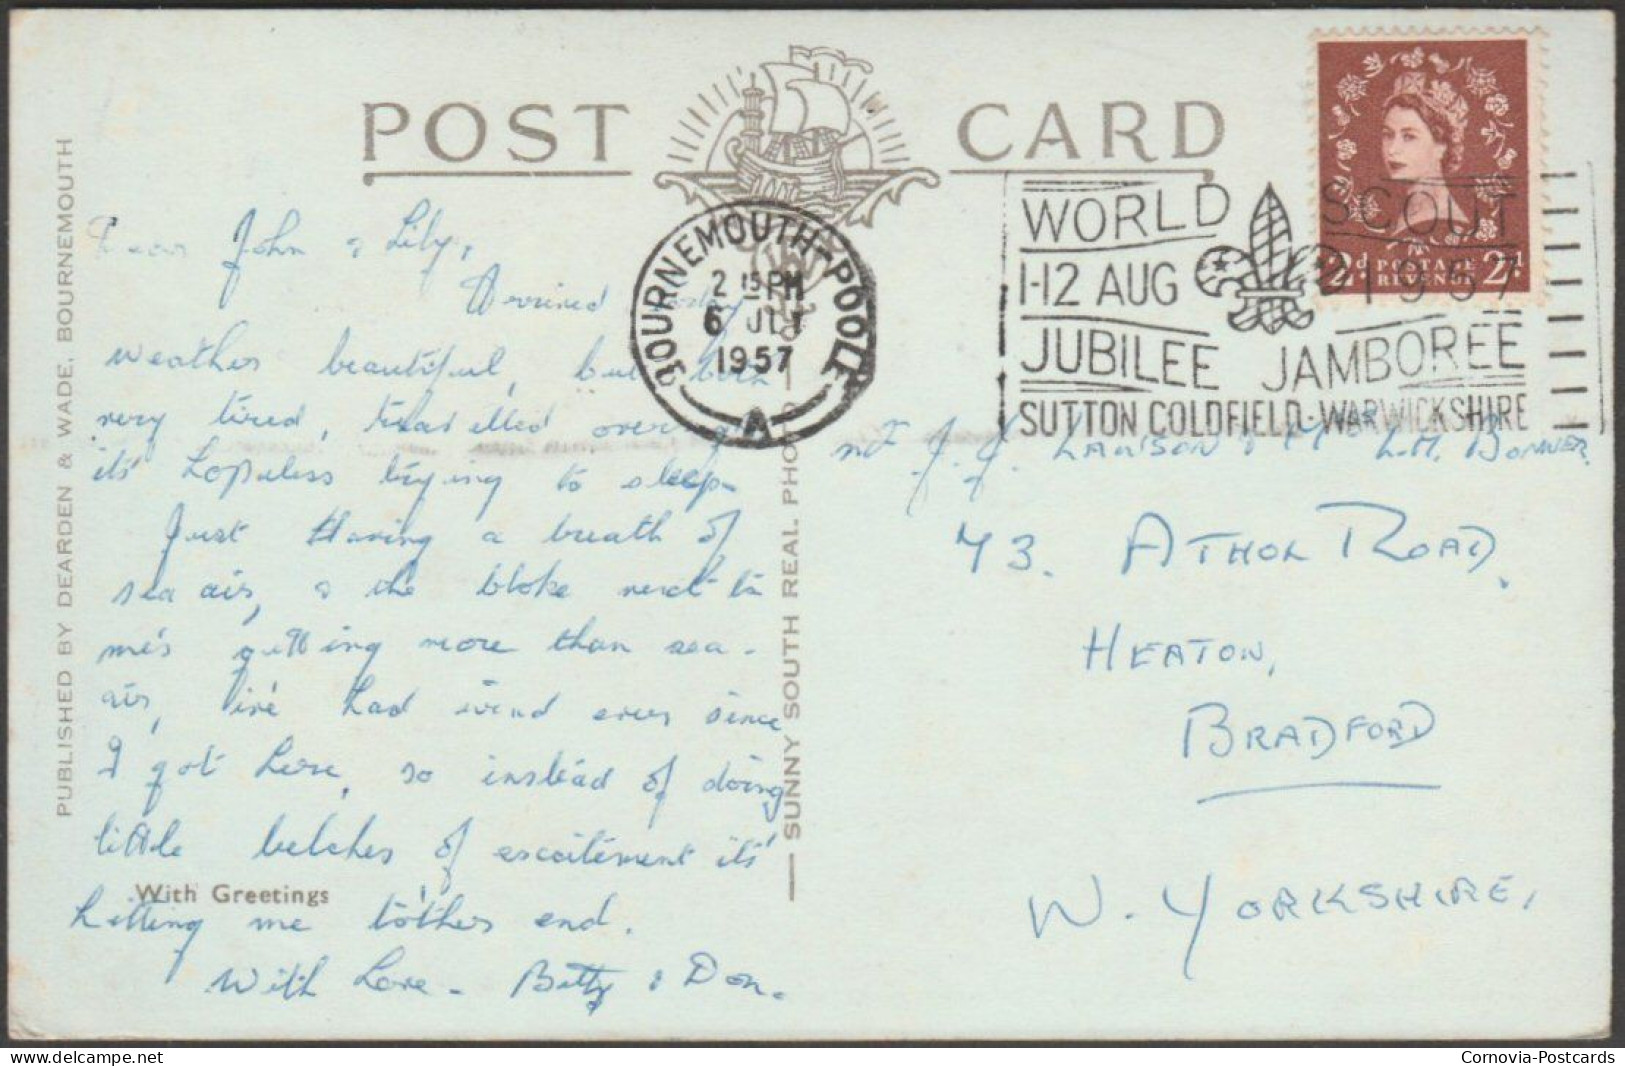 POST CARD
PUBLISHED BY DEARDEN & WADE, BOURNEMOUTH
SUNNY SOUTH REAL PHOTO
BOURNEMOUTH-POOLE
2 15 PM
6 JLY
1957
A
WORLD SCOUT
1-12 AUG 1957
JUBILEE JAMBOREE
SUTTON COLDFIELD-WARWICKSHIRE
2d POSTAGE REVENUE 2d
Dear John & Lily,
Arrived today
weather beautiful, but both
very tired, travelled over
it's hopeless trying to sleep-
Just Having a breath of
sea air, & the bloke next to
me's getting more than sea-
air, I've had wind ever since
I got here, so instead of doing
little belches of excitement it's
hitting me t'other end.
With Love - Betty & Don.
With Greetings
J. J. LAWSON & L.M. BONNER.
43. ATHOL ROAD,
HEATON,
BRADFORD
W. YORKSHIRE,
Cornovia-Postcards
www.delcampe.net